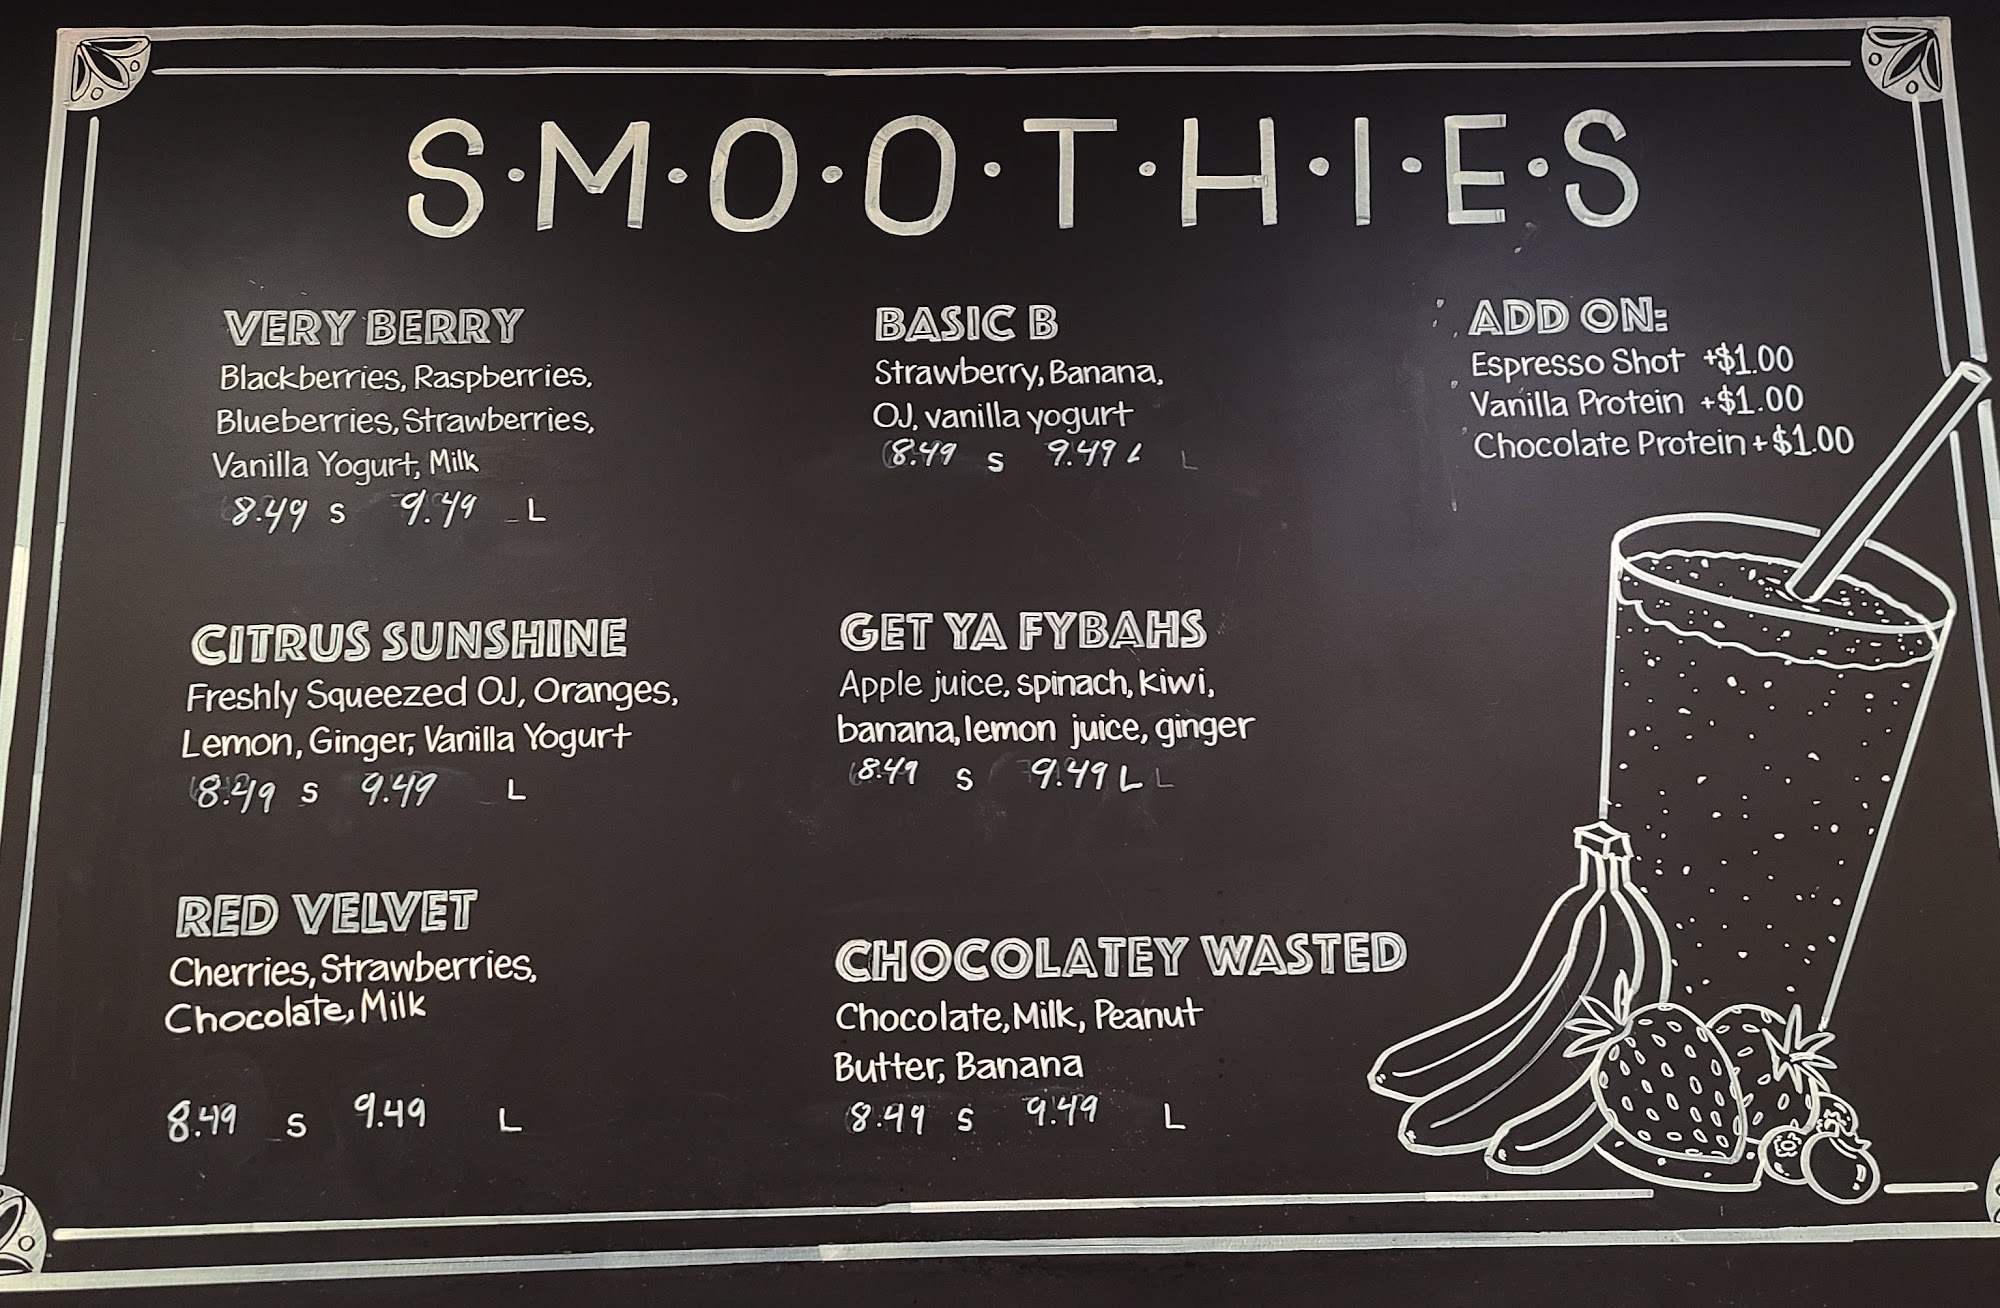 S·M·O·O·T·H·I·E·S
VERY BERRY
Blackberries, Raspberries,
Blueberries, Strawberries,
Vanilla Yogurt, Milk
8.49 S 9.49 L
CITRUS SUNSHINE
Freshly Squeezed OJ, Oranges,
Lemon, Ginger, Vanilla Yogurt
8.49 S 9.49 L
RED VELVET
Cherries, Strawberries,
Chocolate, Milk
8.49 S 9.49 L
BASIC B
Strawberry, Banana,
OJ, vanilla yogurt
8.49 S 9.49 L L
GET YA FYBAHS
Apple juice, spinach, kiwi,
banana, lemon juice, ginger
8.49 S 9.49 L L
CHOCOLATEY WASTED
Chocolate, Milk, Peanut
Butter, Banana
8.49 S 9.49 L
ADD ON:
Espresso Shot +$1.00
Vanilla Protein +$1.00
Chocolate Protein +$1.00